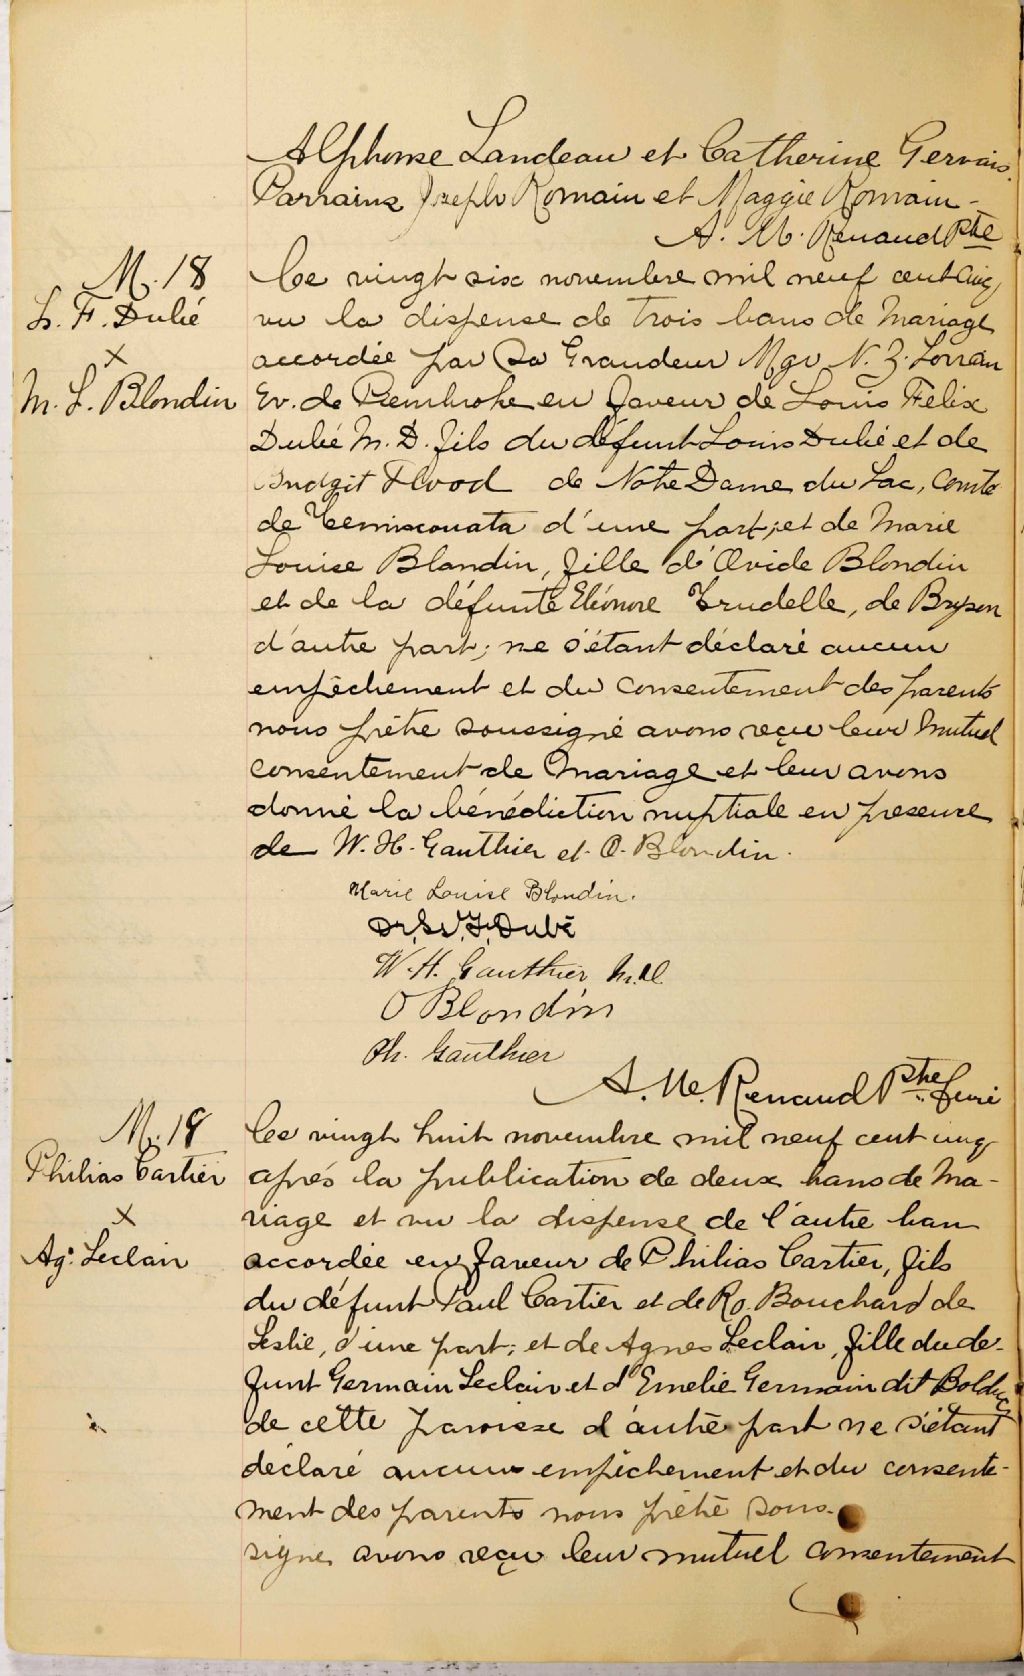 Alphonse Landeau et Catherine Gervais.
Parrains Joseph Romain et Maggie Romain -
A. M. Renaud Ptre
M. 18
L. F. Dubé
x
M. L. Blondin
Ce vingt six novembre mil neuf cent cinq
vu la dispense de trois bans de Mariage
accordée par Sa Grandeur Mgr N. Z. Lorrain
Ev. de Pembroke en faveur de Louis Félix
Dubé M. D. fils du défunt Louis Dubé et de
Bridgit Flood de Notre Dame du Lac, Comté
de Temiscouata d'une part; et de Marie
Louise Blandin, fille d'Ovide Blondin
et de la défunte Eléonore Trudelle, de Bryson
d'autre part; ne s'étant déclaré aucun
empêchement et du consentement des parents
nous prêtre soussigné avons reçu leur mutuel
consentement de Mariage et leur avons
donné la bénédiction nuptiale en presence
de W. H. Gauthier et O. Blondin.
Marie Louise Blondin.
Dr. L. F. Dubé
W. H. Gauthier M.D.
O Blondin
Th. Gauthier
A. M. Renaud Ptre Curé
M. 19
Philias Cartier
x
Ag. Leclair
Ce vingt huit novembre mil neuf cent cinq
après la publication de deux bans de Ma-
riage et vu la dispense de l'autre ban
accordée en faveur de Philias Cartier, fils
du défunt Paul Cartier et de Ro. Bouchard de
Leslie, d'une part; et de Agnes Leclair, fille du dé-
funt Germain Leclair et d'Emelie Germain dit Bolduc
de cette paroisse d'autre part ne s'étant
déclaré aucun empêchement et du consente-
ment des parents nous prêtre sous-
signé avons reçu leur mutuel consentement